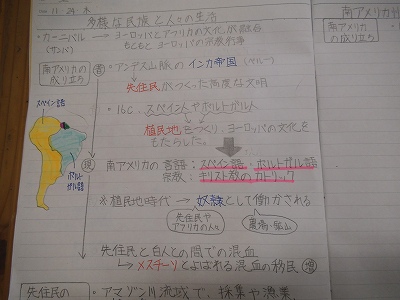 11.24 木
多様な民族と人々の生活
・カーニバル → ヨーロッパとアフリカの文化が融合
(サンバ) もともとヨーロッパの宗教行事
南アメリカの成り立ち
昔
・アンデス山脈のインカ帝国(ペルー)
先住民がつくった高度な文明
・16C、スペイン人やポルトガル人
植民地をつくり、ヨーロッパの文化を
もたらした。
スペイン語
ポルトガル語
現
南アメリカの言語:スペイン語・ポルトガル語
宗教:キリスト教のカトリック
※植民地時代 → 奴隷として働かされる
先住民やアフリカの人々
農場・鉱山
先住民と白人との間での混血
→メスチーソとよばれる混血の移民 増
先住民の
・アマゾン川流域で、採集や漁業、
南アメリカの成り立ち
南アメ